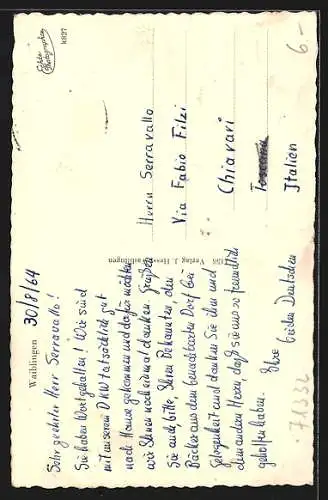 Echte
Photographie
k897
6-
Waiblingen
30/8/64
Sehr geehrter Herr Serravallo!
Sie haben Wort gehalten! Wir sind
mit unserem DKW tatsächlich gut
nach Hause gekommen und dafür möchten
wir Ihnen noch einmal danken. Grüßen
Sie auch, bitte, Ihren Bekannten, den
Bäcker aus dem benachbarten Dorf bei
Gelegenheit und danken Sie ihm und
dem andern Herrn, daß sie uns so freundlich
geholfen haben. Ihre beiden Deutschen
Verlag J. Hess, Waiblingen
Herrn Serravallo
Via Fabio Filzi
Chiavari
Italien